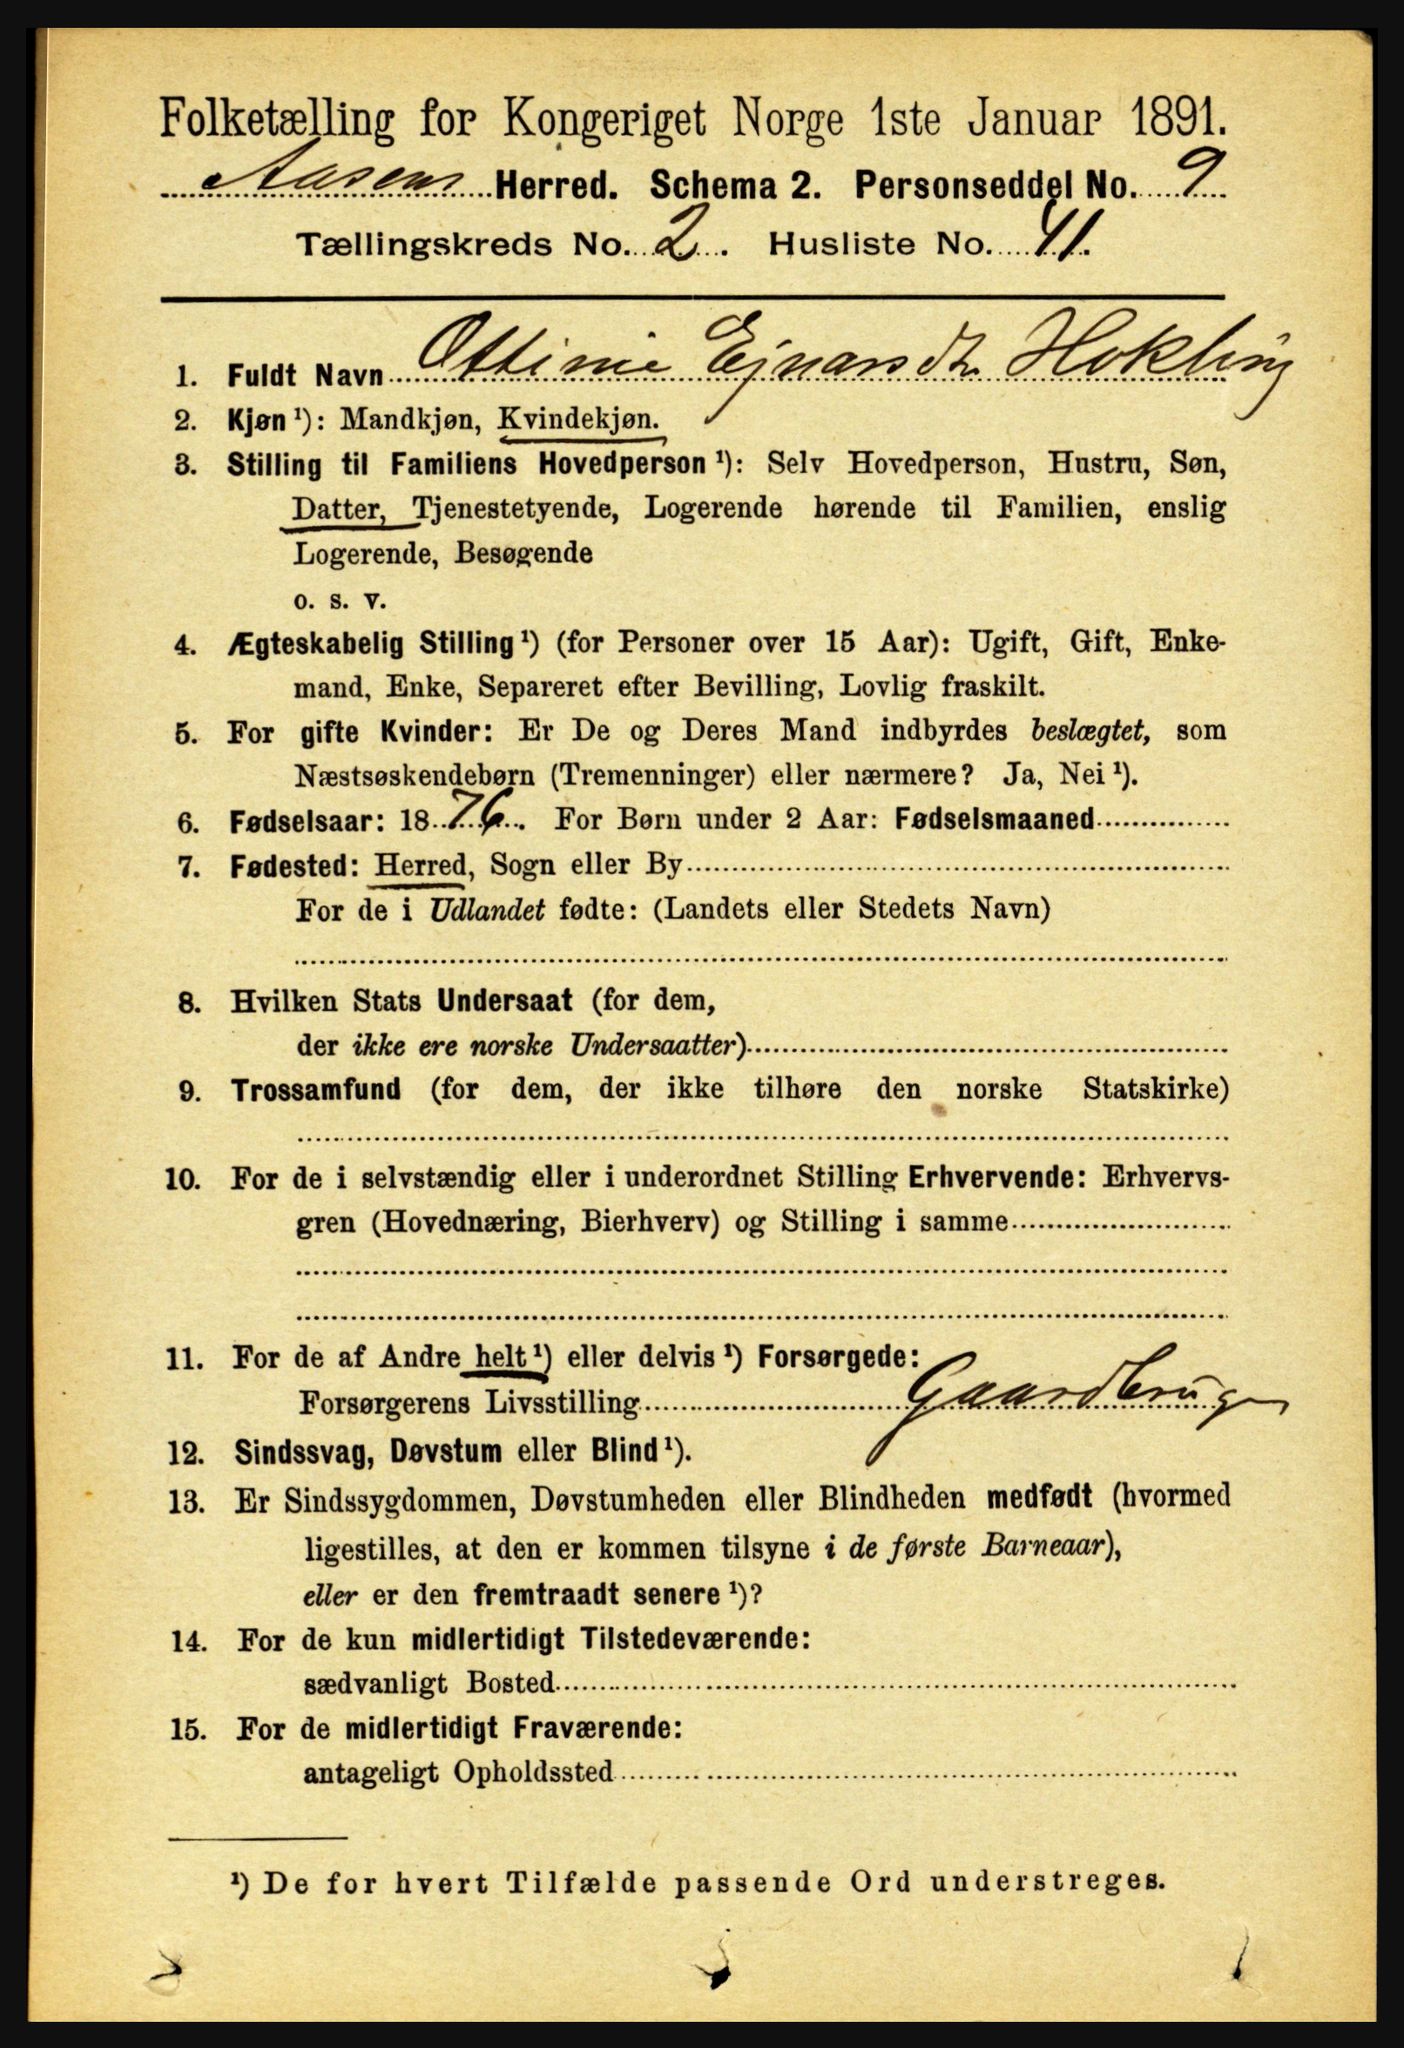 Folketælling for Kongeriget Norge 1ste Januar 1891.
Aasens Herred. Schema 2. Personseddel No. 9
Tællingskreds No. 2. Husliste No. 41.
1. Fuldt Navn Ottinie Ejnarsdtr Hokling
2. Kjøn ¹): Mandkjøn, Kvindekjøn.
3. Stilling til Familiens Hovedperson ¹): Selv Hovedperson, Hustru, Søn,
Datter, Tjenestetyende, Logerende hørende til Familien, enslig
Logerende, Besøgende
o. s. v.
4. Ægteskabelig Stilling ¹) (for Personer over 15 Aar): Ugift, Gift, Enke-
mand, Enke, Separeret efter Bevilling, Lovlig fraskilt.
5. For gifte Kvinder: Er De og Deres Mand indbyrdes beslægtet, som
Næstsøskendebørn (Tremenninger) eller nærmere? Ja, Nei ¹).
6. Fødselsaar: 1876. For Børn under 2 Aar: Fødselsmaaned
7. Fødested: Herred, Sogn eller By
For de i Udlandet fødte: (Landets eller Stedets Navn)
8. Hvilken Stats Undersaat (for dem,
der ikke ere norske Undersaatter)
9. Trossamfund (for dem, der ikke tilhøre den norske Statskirke)
10. For de i selvstændig eller i underordnet Stilling Erhvervende: Erhvervs-
gren (Hovednæring, Bierhverv) og Stilling i samme
11. For de af Andre helt ¹) eller delvis ¹) Forsørgede:
Forsørgerens Livsstilling Gaardbruger
12. Sindssvag, Døvstum eller Blind ¹).
13. Er Sindssygdommen, Døvstumheden eller Blindheden medfødt (hvormed
ligestilles, at den er kommen tilsyne i de første Barneaar),
eller er den fremtraadt senere ¹)?
14. For de kun midlertidigt Tilstedeværende:
sædvanligt Bosted
15. For de midlertidigt Fraværende:
antageligt Opholdssted
¹) De for hvert Tilfælde passende Ord understreges.